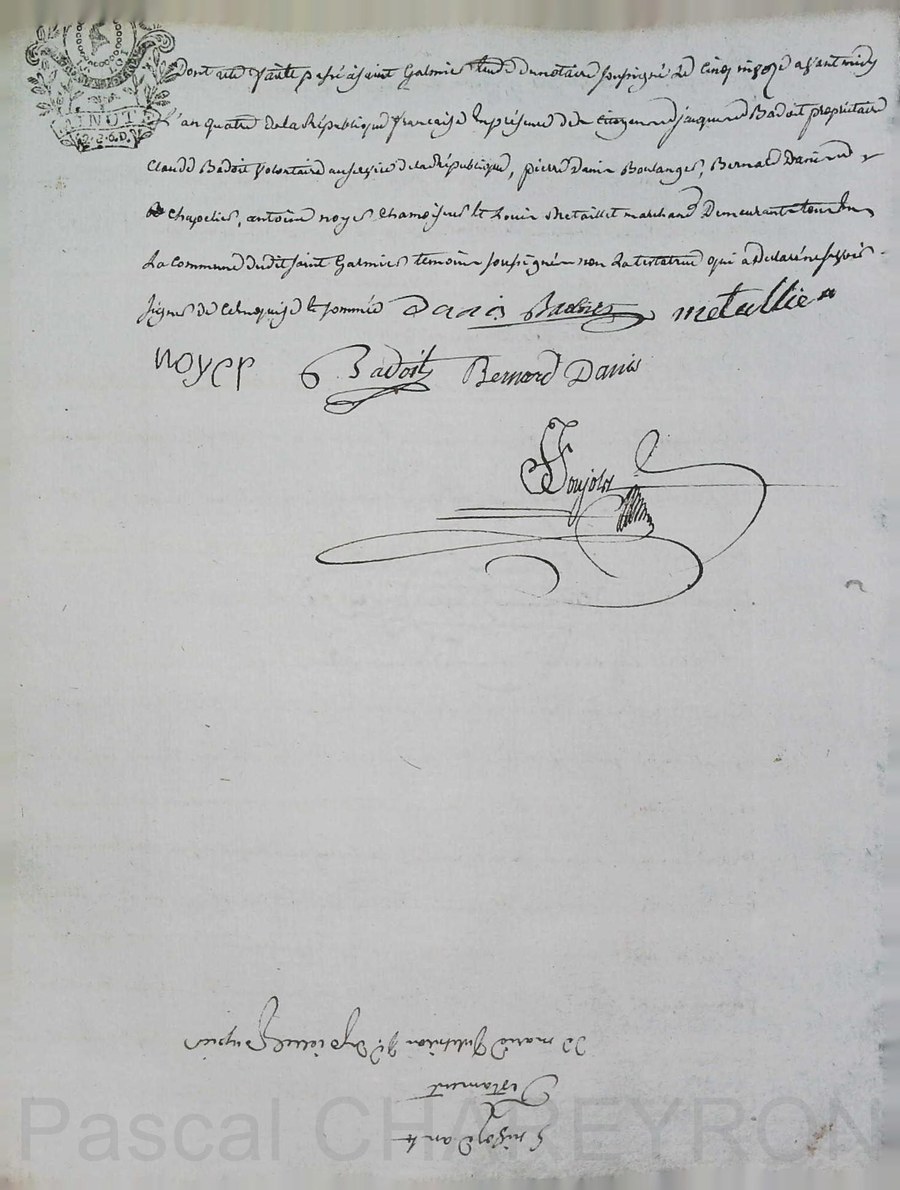 MINUTE
Dont acte fait et passé a saint Galmier Etude du notaire soussigné le cinq nivose avant midy
L'an quatre de la République française En présence des Citoyens jacques Badoit propriétaire
Claude Badoit Volontaire au service de la République, pierre Danis Boulanger, Bernard Danis
chapelier, antoine noyer Chamoiseur et Louis Metaillet marchand Demeurants tous En
La Commune dudit saint Galmier temoins soussignés non La testatrice qui a declaré ne sçavoir
signer de ce enquise et sommée Danis Badoit metallier
noyer Badoit Bernard Danis
Poujolat
5 nivose an 4
Testament
de marie fe. de pierre Dupuis
Pascal CHAREYRON